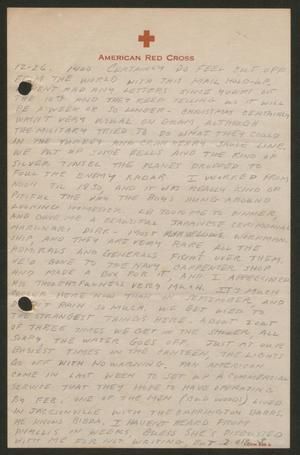 AMERICAN RED CROSS
12-26. 1400 CERTAINLY DO FEEL CUT OFF
FROM THE WORLD WITH THIS MAIL HOLD-UP,
HAVENT HAD ANY LETTERS SINCE YOURS OF
THE 10TH AND THEY KEEP TELLING US IT WILL
BE A WEEK OR SO LONGER. CHRISTMAS CERTAINLY
WASN'T VERY USUAL ON GUAM, ALTHOUGH
THE MILITARY TRIED TO DO WHAT THEY COULD
IN THE TURKEY AND CRANBERRY SAUCE LINE,
WE PUT UP SOME BELLS AND THE KIND OF
SILVER TINSEL THE PLANES DROPPED TO
FOUL THE ENEMY RADAR I WORKED FROM
NOON TIL 1830, AND IT WAS REALLY KIND OF
PITIFUL THE WAY THE BOYS HUNG AROUND
LOOKING HOMESICK. ED TOOK ME TO DINNER,
AND GAVE ME A BEAUTIFUL JAPANESE CEREMONIAL
HARI-KARI DIRK - MOST MARVELOUS WORKMAN-
SHIP AND THEY ARE VERY RARE, ALL THE
ADMIRALS AND GENERALS FIGHT OVER THEM.
HE'D GONE TO THE NAVY CARPENTER SHOP
AND MADE A BOX FOR IT, AND I APPRECIATED
HIS THOUGHTFULNESS VERY MUCH. IT'S MUCH
COOLER HERE NOW THAN IN SEPTEMBER, AND
RAIN SO MUCH, WE GET USED TO
THE STRANGEST THINGS HERE. ABOUT 2 OUT
OF THREE TIMES WE GET IN THE SHOWER ALL
SOAPY, THE WATER GOES OFF. JUST AT OUR
BUSIEST TIMES IN THE CANTEEN, THE LIGHTS
GO OFF WITH NO WARNING. PAN AMERICAN
CAME IN LAST WEEK TO SET UP A COMMERCIAL
SERVICE THAT THEY HOPE TO HAVE OPERATING
BY FEB. ONE OF THE MEN (OLD WOODS) LIVED
IN JACKSONVILLE WITH THE BARRINGTON BARRS.
HE KNOWS BIDDA, I HAVENT HEARD FROM
PHYLLIS IN WEEKS, GUESS SHE'S DISGUSTED
WITH ME FOR NOT WRITING, BUT 2 OF